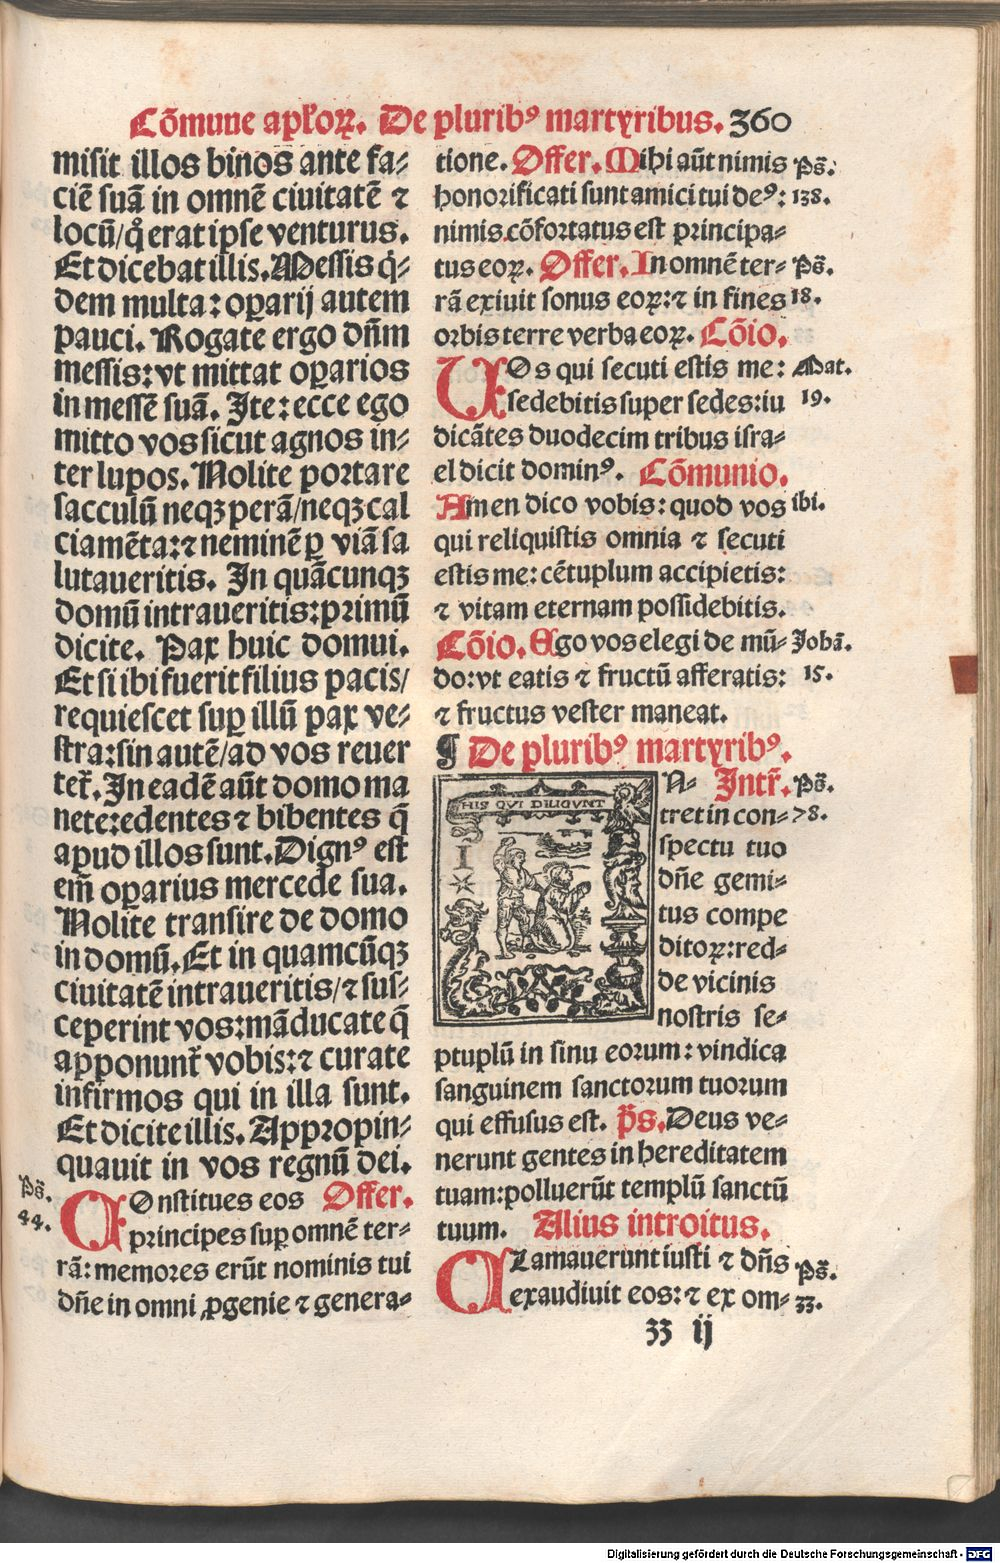 Cōmune apl'oꝝ. De pluribꝰ martyribus. 360
misit illos binos ante fa-
ciē suā in omnē ciuitatē ⁊
locū/q̊ erat ipse venturus.
Et dicebat illis. Messis q̇-
dem multa: oꝑarij autem
pauci. Rogate ergo dn̄m
messis: vt mittat oꝑarios
in messē suā. Ite: ecce ego
mitto vos sicut agnos in-
ter lupos. Nolite portare
sacculū neqꝫ perā/neqꝫ cal
ciamēta: ⁊ neminē ꝑ viā sa
lutaueritis. In quācunqꝫ
domū intraueritis: primū
dicite. Pax huic domui.
Et si ibi fuerit filius pacis/
requiescet suꝑ illū pax ve-
stra: sin autē/ad vos reuer
tet̄. In eadē aūt domo ma
nete: edentes ⁊ bibentes q̄
apud illos sunt. Dignꝰ est
em̄ oꝑarius mercede sua.
Nolite transire de domo
in domū. Et in quamcūqꝫ
ciuitatē intraueritis/⁊ sus-
ceperint vos: māducate q̄
apponunt̄ vobis: ⁊ curate
infirmos qui in illa sunt.
Et dicite illis. Appropin-
quauit in vos regnū dei.
Ps̄. 44.
COnstitues eos Offer.
principes suꝑ omnē ter-
rā: memores erūt nominis tui
dn̄e in omni ꝓgenie ⁊ genera-
tione. Offer. Mihi aūt nimis Ps̄.
honorificati sunt amici tui deꝰ: 138.
nimis cōfortatus est principa-
tus eoꝝ. Offer. In omnē ter- Ps̄.
rā exiuit sonus eoꝝ: ⁊ in fines 18.
orbis terre verba eoꝝ. Cōio.
VOs qui secuti estis me: Mat.
sedebitis super sedes: iu 19.
dicātes duodecim tribus isra-
el dicit dominꝰ. Cōmunio.
Amen dico vobis: quod vos ibi.
qui reliquistis omnia ⁊ secuti
estis me: cētuplum accipietis:
⁊ vitam eternam possidebitis.
Cōio. Ego vos elegi de mū- Johā.
do: vt eatis ⁊ fructū afferatis: 15.
⁊ fructus vester maneat.
¶ De pluribꝰ martyribꝰ.
HIS QVI DILIGVNT
I
N- Intr̄. Ps̄.
tret in con- 78.
spectu tuo
dn̄e gemi-
tus compe
ditoꝝ: red-
de vicinis
nostris se-
ptuplū in sinu eorum: vindica
sanguinem sanctorum tuorum
qui effusus est. p̄s. Deus ve-
nerunt gentes in hereditatem
tuam: polluerūt templū sanctū
tuum. Alius introitus.
CLamauerunt iusti ⁊ dn̄s Ps̄.
exaudiuit eos: ⁊ ex om- 33.
33 ij
Digitalisierung gefördert durch die Deutsche Forschungsgemeinschaft - DFG